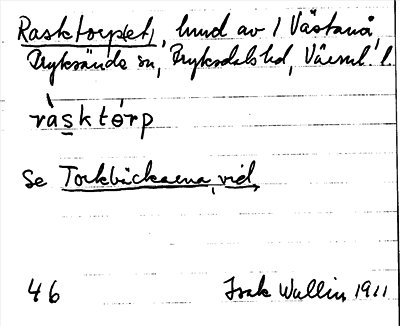 Rasktorp(et), hmd av 1 Västanå,
Fryksände sn, Fryksdals hd, Värml. l.
ràsktòrp
Se Torkbäckarna, vid
46 Isak Wallin 1911